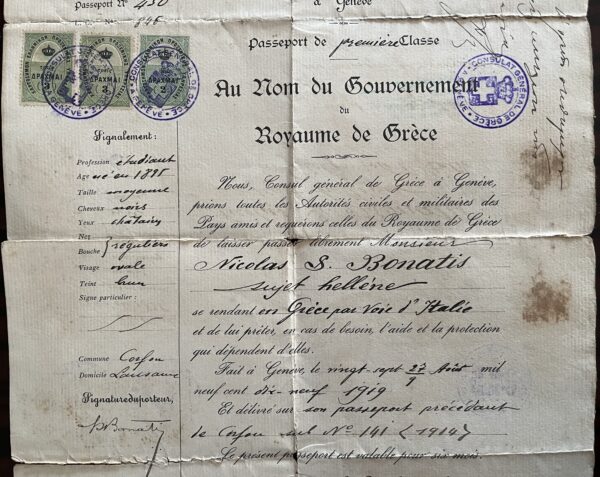 Passeport Nº 430
L. C. Nº 846
à Genève
Passeport de première Classe
ΔΡΑΧΜΑΙ
ΔΡΑΧΜΑΙ
ΔΡΑΧΜΑΙ
CONSULAT GÉNÉRAL DE GRÈCE
GENÈVE
Au Nom du Gouvernement
du
Royaume de Grèce
Signalement:
Profession étudiant
Age né en 1895
Taille moyenne
Cheveux noirs
Yeux châtains
Nez
Bouche } réguliers
Visage ovale
Teint brun
Signe particulier :
Commune Corfou
Domicile Lausanne
Signature du porteur,
Bonati
Nous, Consul général de Grèce à Genève,
prions toutes les Autorités civiles et militaires des
Pays amis et requérons celles du Royaume de Grèce
de laisser passer librement Monsieur
Nicolas S. Bonatis
sujet hellène
se rendant en Grèce par Voie d'Italie
et de lui prêter, en cas de besoin, l'aide et la protection
qui dépendent d'elles.
Fait à Genève, le vingt sept 27/9 Août, mil
neuf cent dix-neuf 1919
Et délivré sur son passeport précédant
de Corfou sub Nº 141 (1914)
Le présent passeport est valable pour six mois.